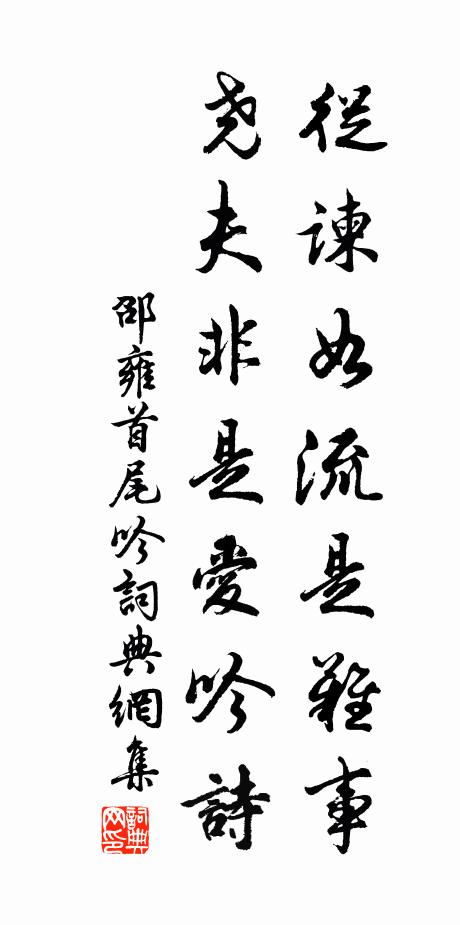 從諫如流是難事
堯夫非是愛吟詩
邵雍首尾吟詞典網集
詞典
网印